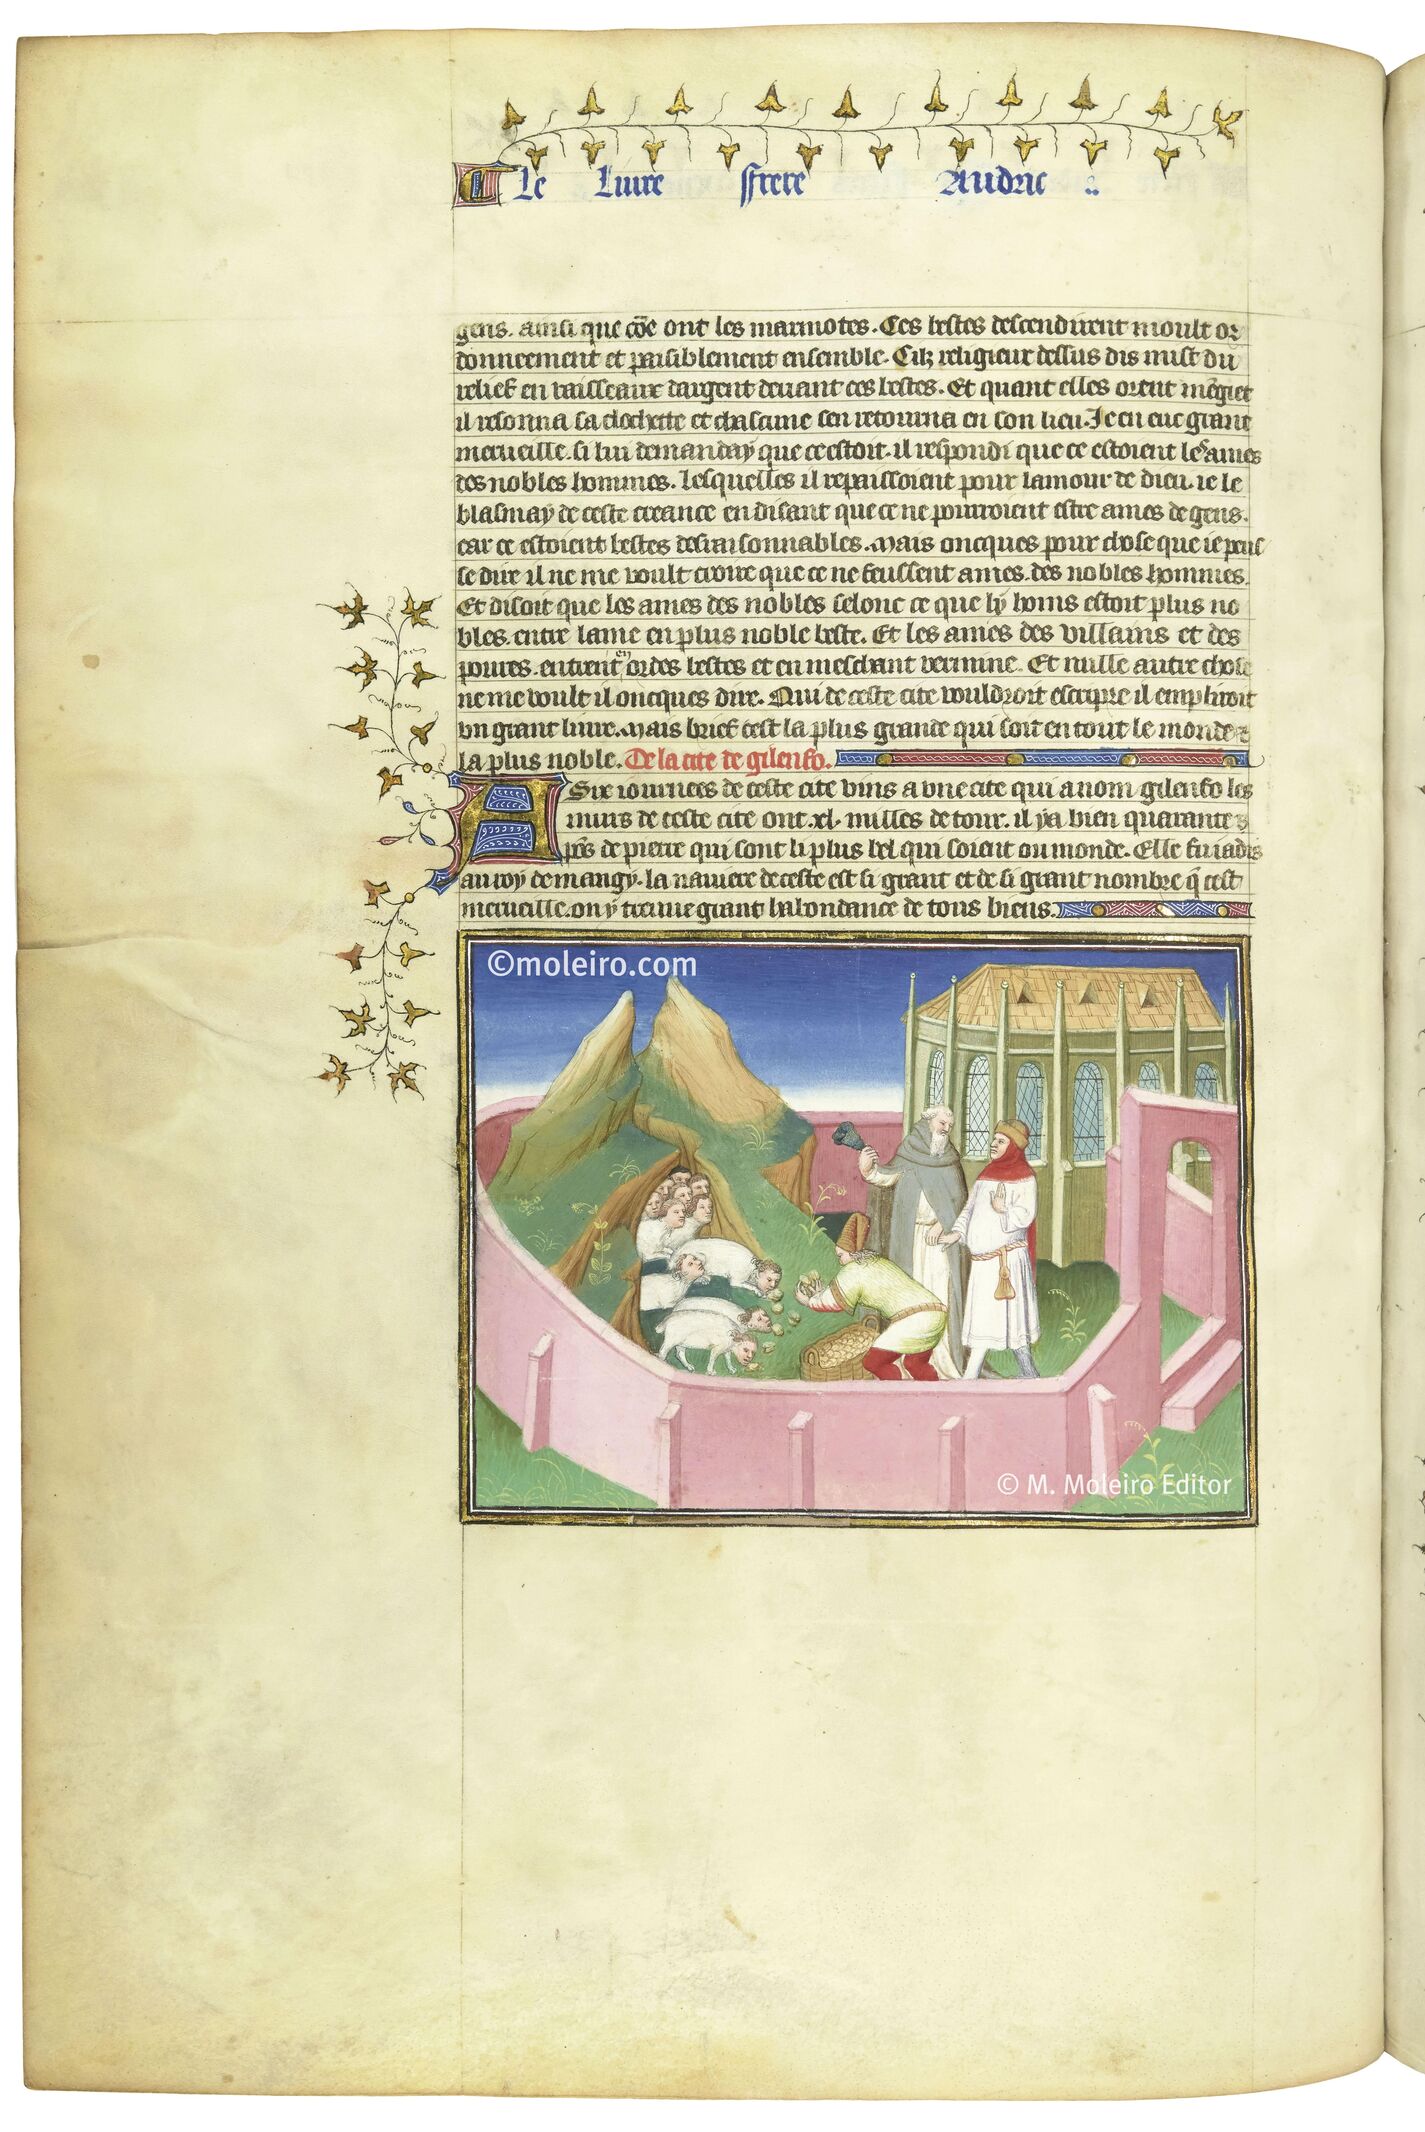 Le Liure ffrere Audric ..
gens. ainsi que cõe ont les marmotes. Ces bestes descendirent moult or
donneement et paisiblement ensemble. Cilz religieux dessus dis mist du
relief en vaisseaux dargent deuant ces bestes. Et quant elles orent mẽgiet
il resonna sa clochette et chascune sen retourna en son lieu. Je en euc grant
merueille. si lui demanday que cestoit. il respondi que ce estoient les ames
des nobles hommes. lesquelles il repaissoient pour lamour de dieu. ie le
blasmay de ceste creance en disant que ce ne pourroient estre ames de gens.
car ce estoient bestes desraisonnables. Mais oncques pour chose que ie peus
se dire il ne me voult croire que ce ne feussent ames des nobles hommes.
Et disoit que les ames des nobles selonc ce que ly homs estoit plus no
bles. entre lame en plus noble beste. Et les ames des villains et des
poures. entrent en ordes bestes et en meschant vermine. Et nulle autre chose
ne me voult il oncques dire. Qui de ceste cite vouldroit escripre il empliroit
vn grant liure. Mais brief cest la plus grande qui soit en tout le monde et
la plus noble. De la cite de gilenfo.
A Six iournees de ceste cite vins a vne cite qui a nom gilenfo les
murs de ceste cite ont .xl. milles de tour. il ya bien quarante
põs de pierre qui sont li plus bel qui soient ou monde. Elle fu iadis
au roy de mangy. la nauiere de ceste est si grant et de si grant nombre q̃ cest
merueille. on y treuue grant habondance de tous biens.
©moleiro.com
© M. Moleiro Editor